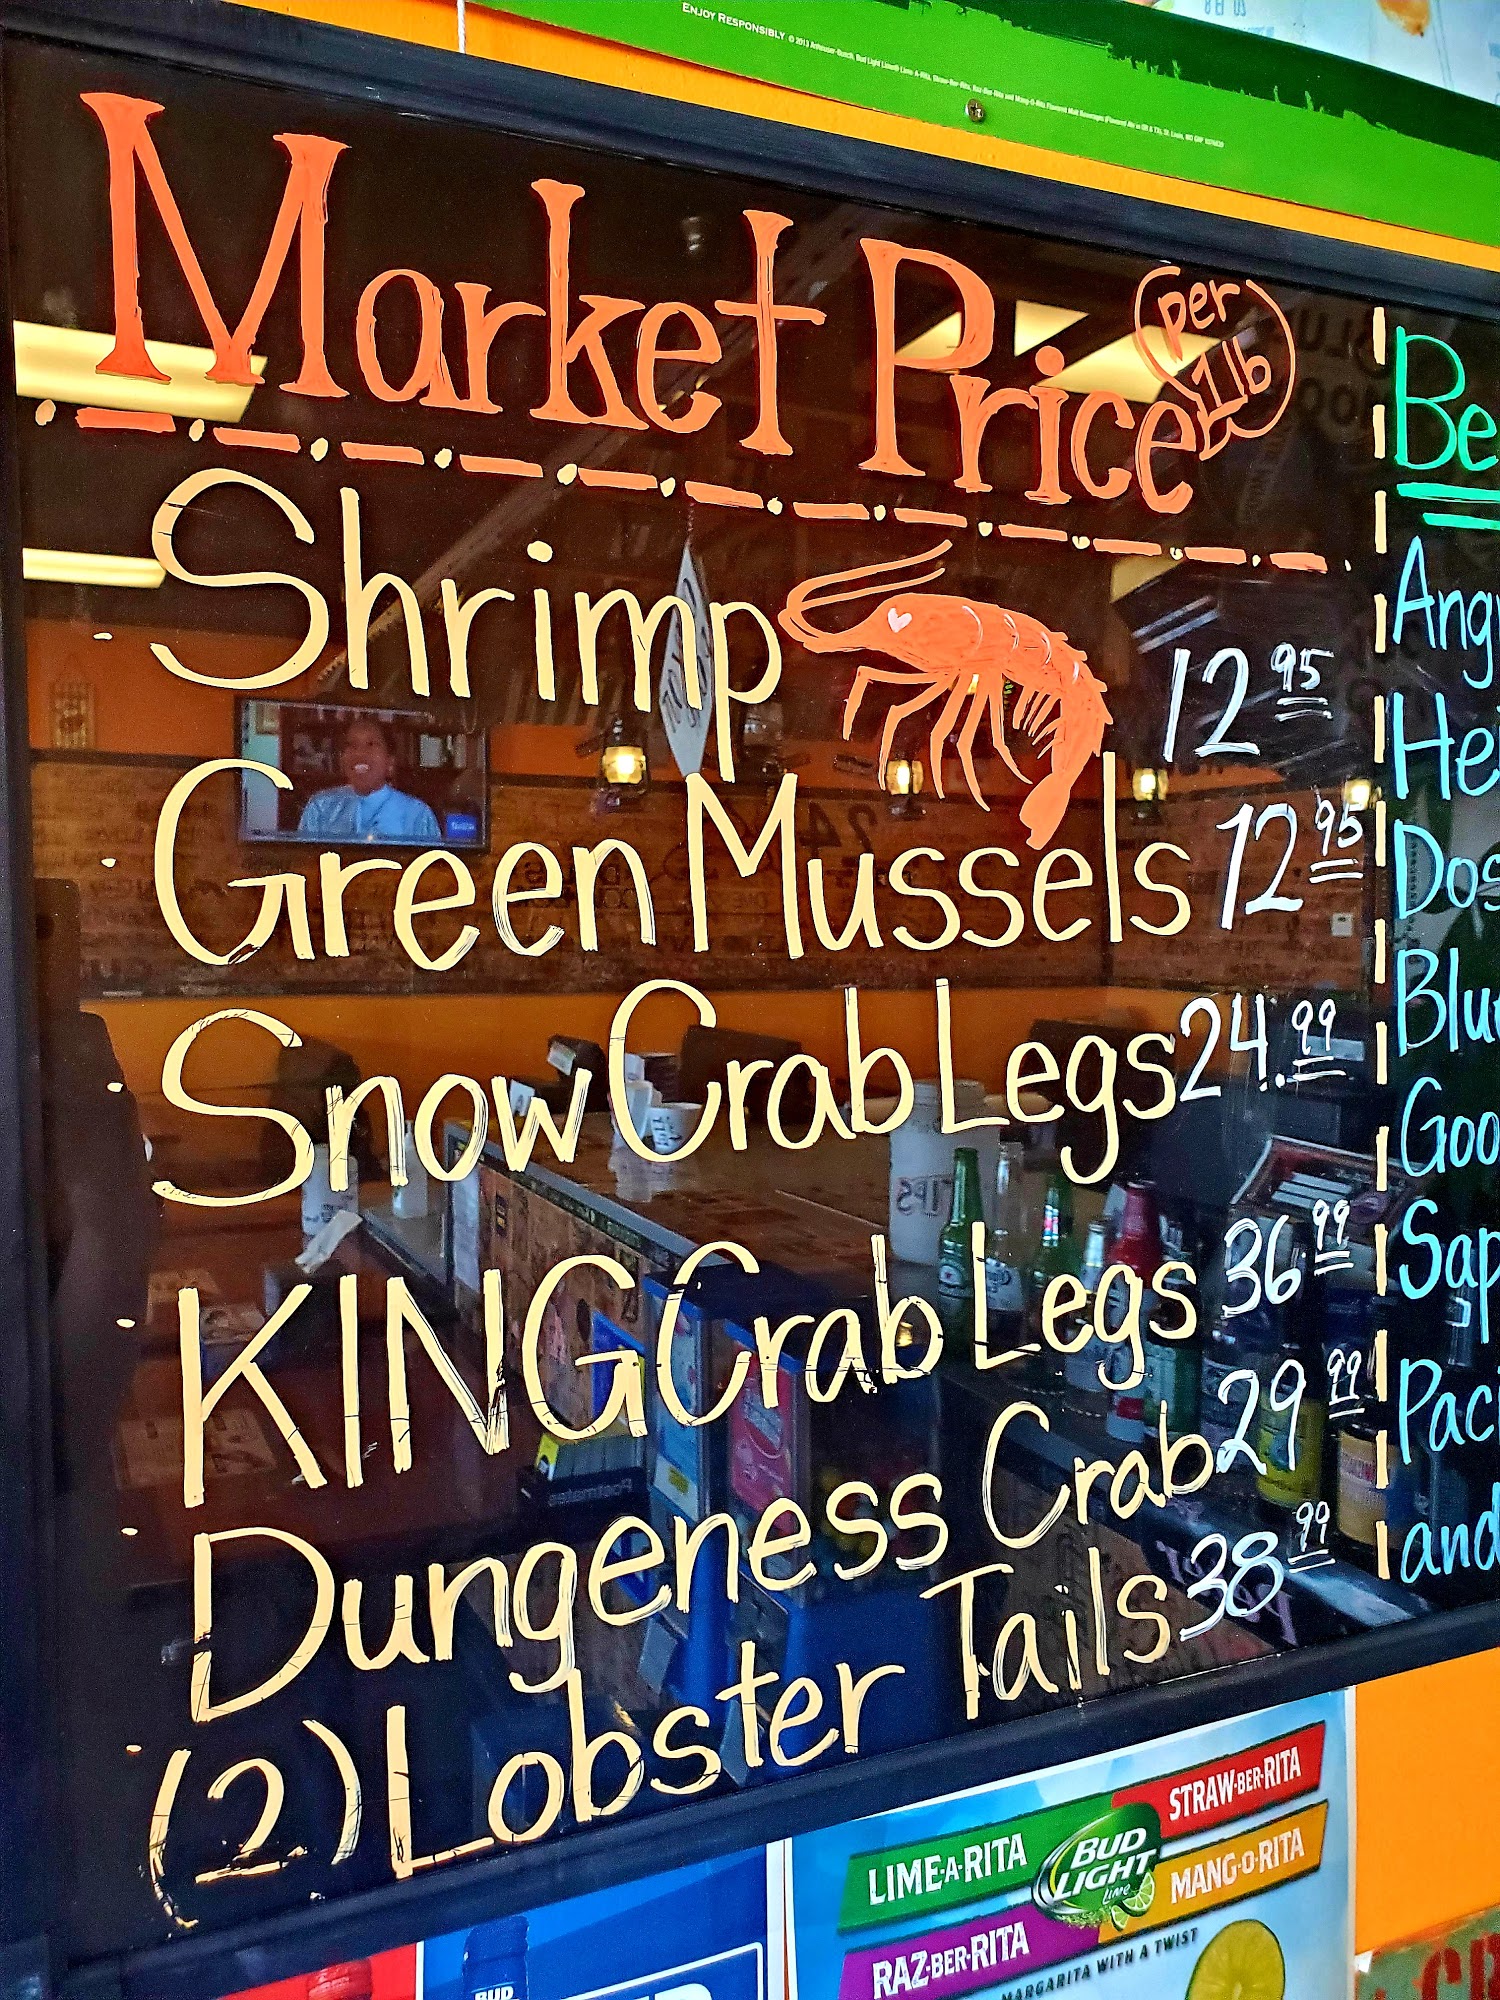 ENJOY RESPONSIBLY
Market Price per 1 lb
Shrimp 12 95
Green Mussels 12 95
Snow Crab Legs 24.99
KING Crab Legs 36 99
Dungeness Crab 29 99
(2) Lobster Tails 38 99
Be
Ang
He
Dos
Blu
Goo
Sap
Paci
and
TIPS
LIME-A-RITA
STRAW-BER-RITA
BUD LIGHT Lime
RAZ-BER-RITA
MANG-O-RITA
MARGARITA WITH A TWIST
BUD